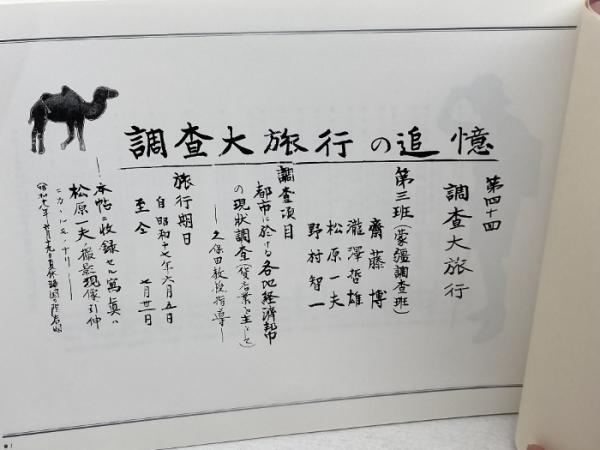 調査大旅行の追憶
第四十四
調査大旅行
第三班(蒙疆調査班)
齋藤博
瀧澤哲雄
松原一夫
野村智一
調査項目
都市に於ける各地経済都市
の現状調査(貨店業を主として)
―久保田教授指導―
旅行期日
自昭和十七年六月五日
至仝 七月廿一日
―本帖ニ收録セル寫真ハ
松原一夫ノ撮影現像引伸
ニカヽルモノナリ―